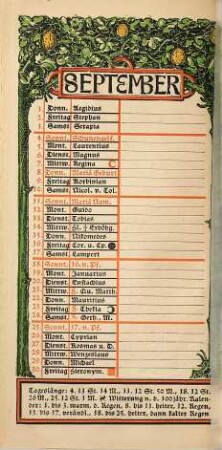 SEPTEMBER
1. Donn. Aegidius
2. Freitag Stephan
3. Samst. Serapia
4. Sonnt. Schutzengelf.
5. Mont. Laurentius
6. Dienst. Magnus
7. Mittw. Regina
8. Donn. Mariä Geburt
9. Freitag Korbinian
10. Samst. Nicol. v. Tol.
11. Sonnt. Mariä Nam.
12. Mont. Guido
13. Dienst. Tobias
14. Mittw. Hl. † Erhöhg.
15. Donn. Nikomedes
16. Freitag Cor. u. Cp.
17. Samst. Lampert
18. Sonnt. 16. n. Pf.
19. Mont. Januarius
20. Dienst. Eustachius
21. Mittw. Qu. Matth.
22. Donn. Mauritius
23. Freitag Thekla
24. Samst. Gerh. M.
25. Sonnt. 17. n. Pf.
26. Mont. Cyprian
27. Dienst. Kosmas u. D.
28. Mittw. Wenzeslaus
29. Donn. Michael
30. Freitag Hieronym.
Tageslänge: 4. 13 St. 14 M., 11. 12 St. 50 M., 18. 12 St.
26 M., 25. 12 St. 1 M. Witterung n. d. 100jähr. Kalen-
der: 1. bis 5. warm, 6. Regen, 8. bis 11. heiter, 12. Regen,
13. bis 17. veränd., 18. bis 25. heiter, dann kalter Regen